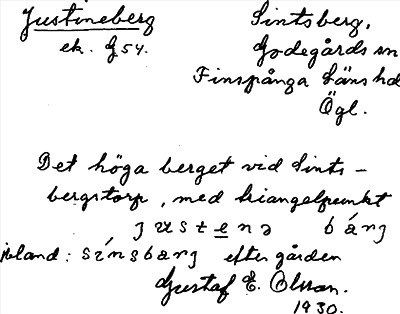 Justineberg Sintsberg,
ek. G 54. Godegårds sn
Finspånga läns hd
Ögl.
Det höga berget vid Sints-
bergstorp, med triangelpunkt
justenə bárj
ibland: sínsbarj efter gården
Gustaf E. Olsson.
1930.